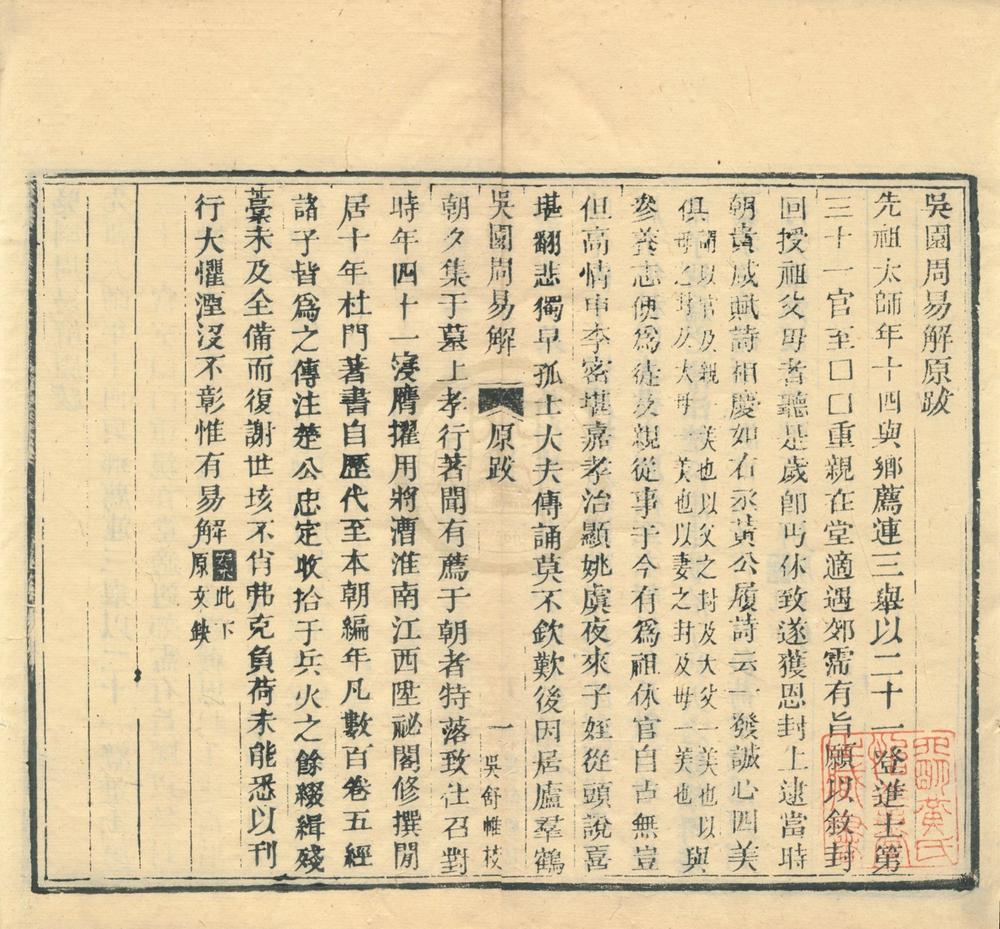 吳園周易解原跋
先祖太師年十四與鄉薦連三舉以二十一登進士第
三十一官至口口重親在堂適遇郊霈有旨願以敘封
回授祖父母者聽是歲卽丐休致遂獲恩封上逮當時
朝貴咸賦詩相慶如右丞黃公履詩云一發誠心四美
俱謂以官及親一美也以父之封及大父一美也以與
母之封及大母一美也以妻之封及母一美也
參養志便爲徒及親從事于今有爲祖休官自古無豈
但高情申李密堪嘉孝治顯姚虞夜來子姪從頭說喜
堪翻悲獨早孤士大夫傳誦莫不欽歎後因居廬羣鶴
吳園周易解 原跋 一 吳舒帷校
朝夕集于墓上孝行著聞有薦于朝者特落致仕召對
時年四十一寖膺擢用將漕淮南江西陞祕閣修撰閒
居十年杜門著書自歷代至本朝編年凡數百卷五經
諸子皆爲之傳注楚公忠定收拾于兵火之餘綴緝殘
藁未及全備而復謝世垓不肖弗克負荷未能悉以刊
行大懼湮沒不彰惟有易解案此下
原文缺